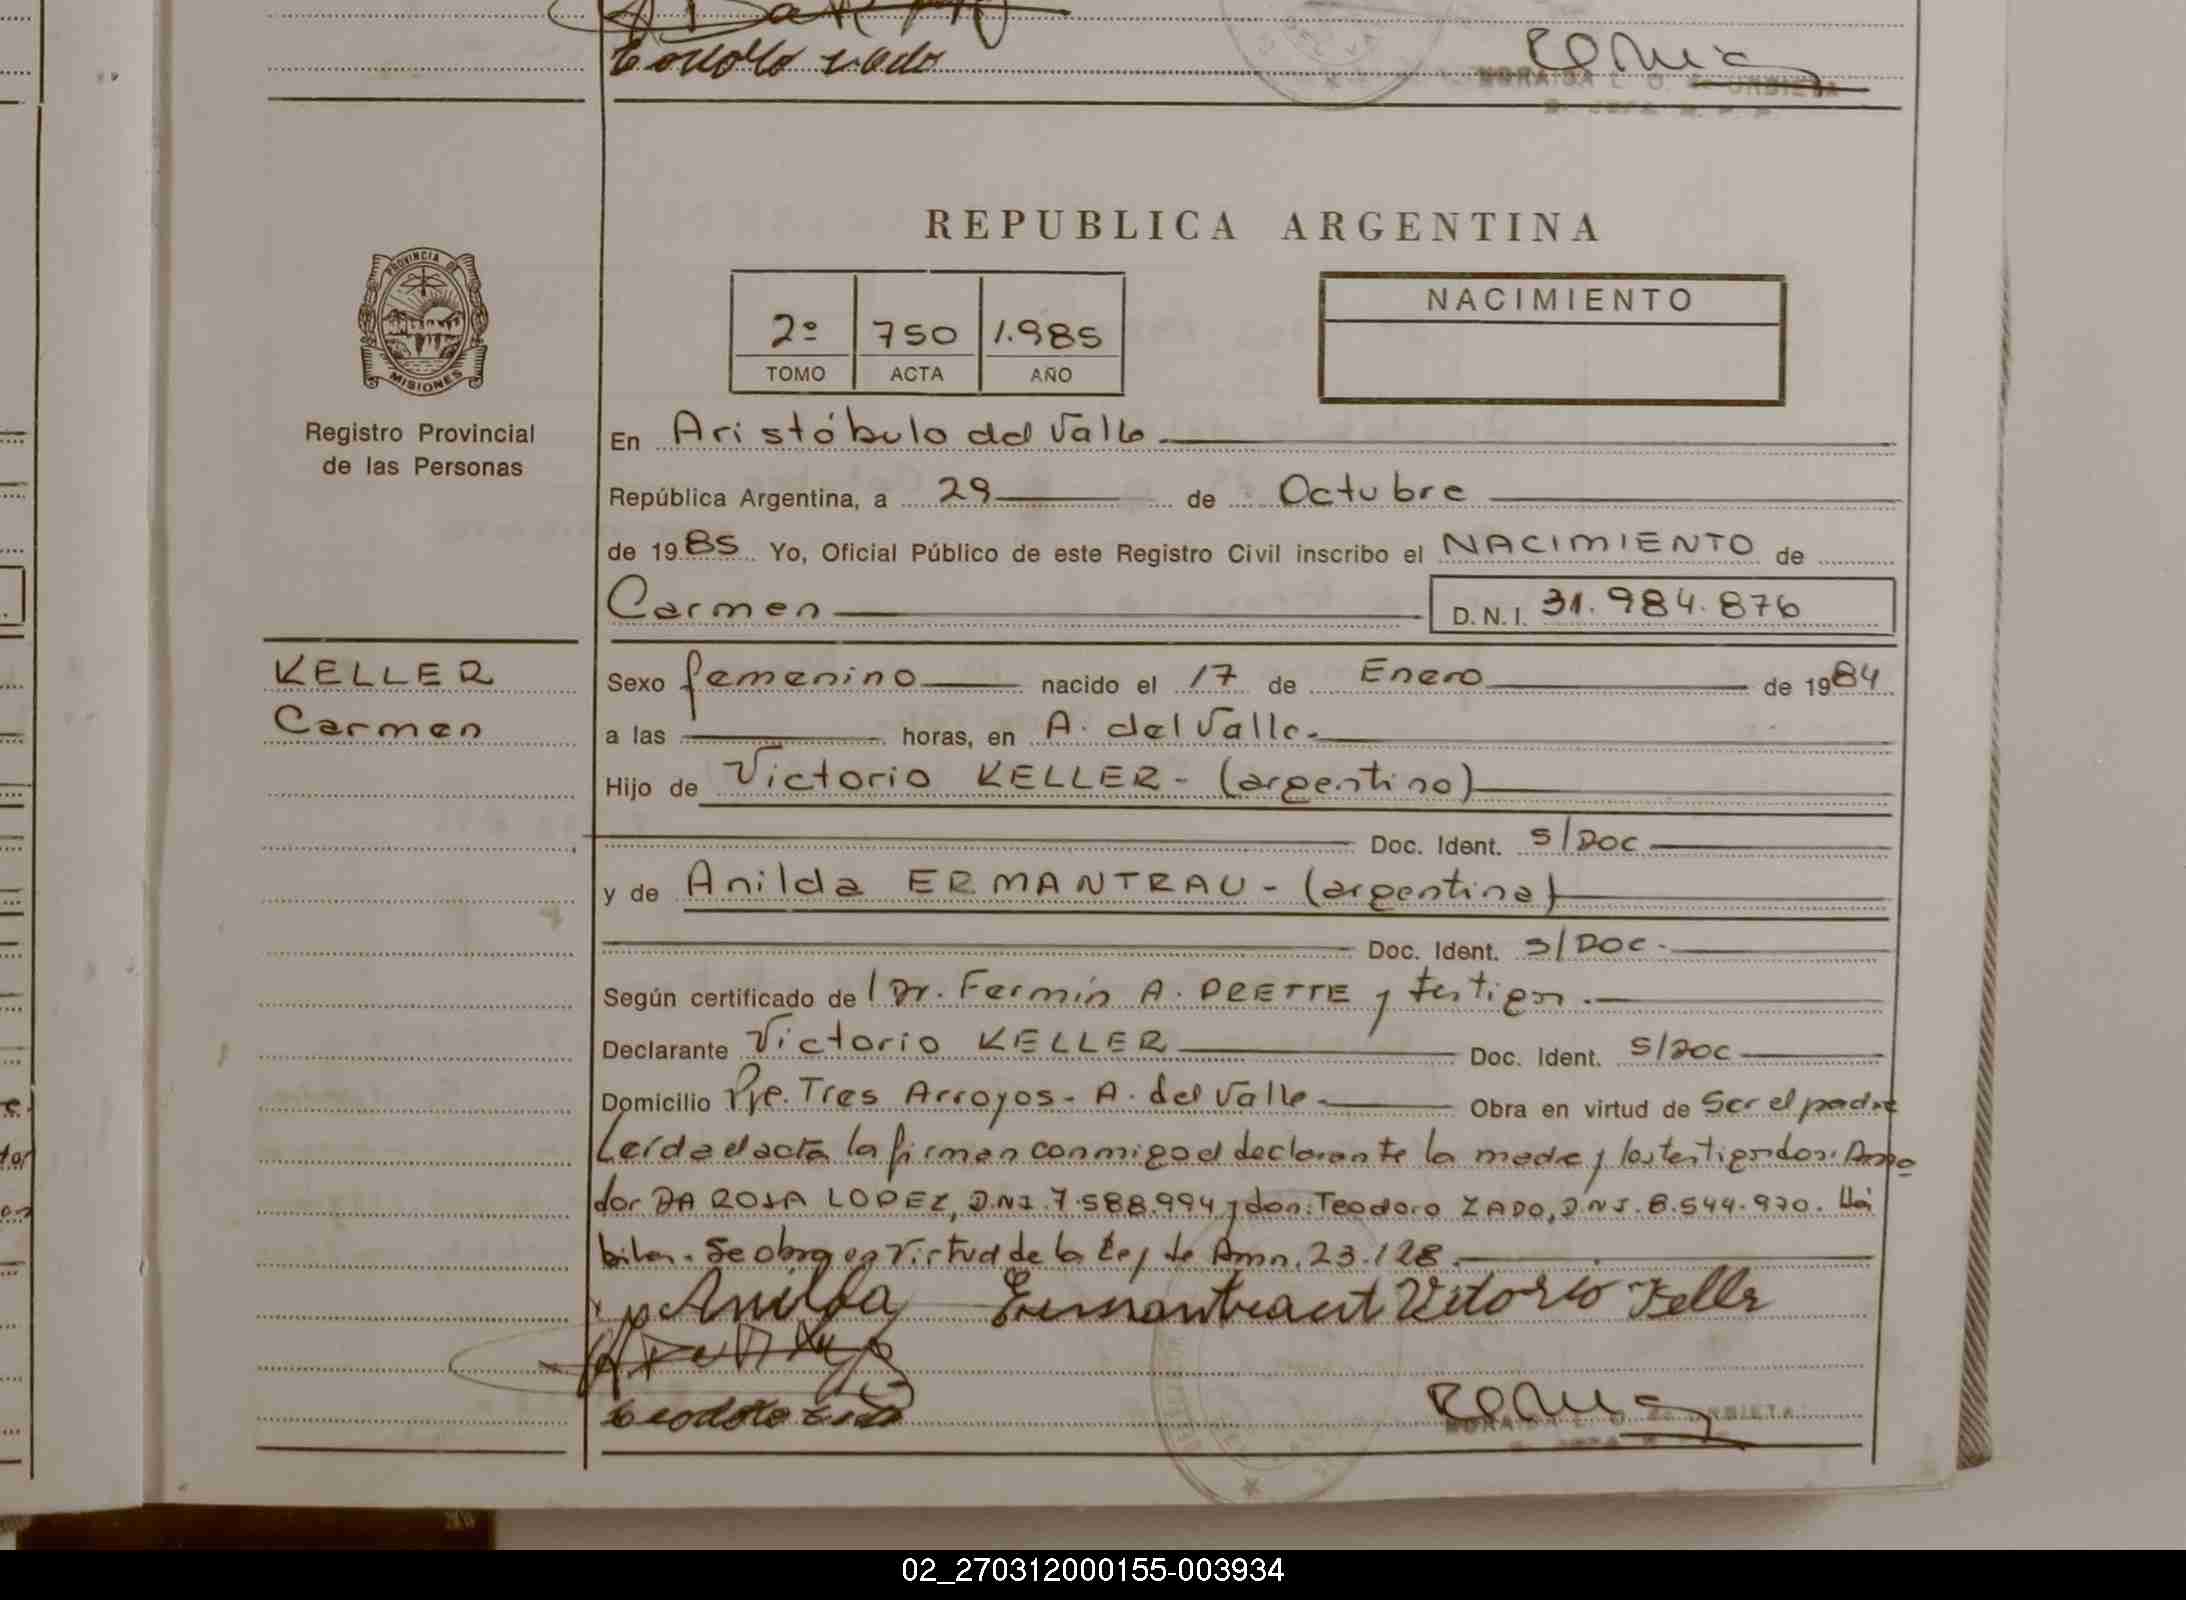 Teodoro Zado
NORAIDA L. O. de URBIETA
REPUBLICA ARGENTINA
PROVINCIA DE
MISIONES
2º 750 1.985
TOMO ACTA AÑO
NACIMIENTO
Registro Provincial
de las Personas
En Aristóbulo del Valle
República Argentina, a 29 de Octubre
de 1985 Yo, Oficial Público de este Registro Civil inscribo el NACIMIENTO de
Carmen D. N. I. 31.984.876
KELLER
Carmen
Sexo femenino nacido el 17 de Enero de 1984
a las horas, en A. del Valle.
Hijo de Victorio KELLER - (argentino)
Doc. Ident. S/DOC
y de Anilda ERMANTRAU - (argentina)
Doc. Ident. S/DOC.
Según certificado de Dr. Fermín A. y testigos.
Declarante Victorio KELLER Doc. Ident. S/DOC
Domicilio Pje. Tres Arroyos - A. del Valle. Obra en virtud de Ser el padre
Leída el acta la firman conmigo el declarante la madre y los testigos don: Ama
dor DA ROSA LOPEZ, D.N.I. 7.588.994 y don: Teodoro ZADO, D.N.I. 8.544.970. Há
biles. Se obra en virtud de la Ley de Amn. 23.128.
Anilda Ermantraut Vitorio Keller
Teodoro Zado
NORAIDA L. O. de URBIETA
02_270312000155-003934